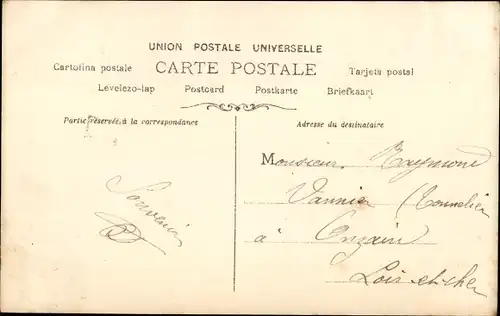 UNION POSTALE UNIVERSELLE
Cartolina postale CARTE POSTALE Tarjeta postal
Levelezo-lap Postcard Postkarte Briefkaart
Partie réservée à la correspondance
Adresse du destinataire
Souvenir
Monsieur Raymond
Vannier (Tonnelier
à Onzain
Loir-et-cher